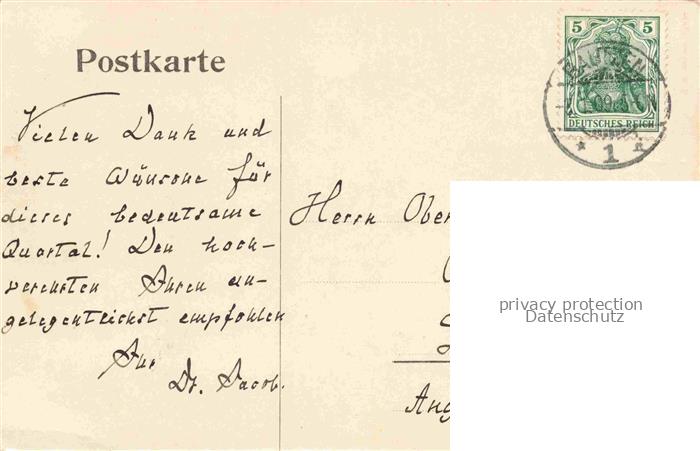 Postkarte
5 5
BAUTZEN
09
DEUTSCHES REICH
* 1
Vielen Dank und
beste Wünsche für
dieses bedeutsame
Quartal! Den hoch-
verehrten Ihren an-
gelegentlichst empfohlen
Ihr
Dr. Jacob.
Herrn Ober
privacy protection
Datenschutz